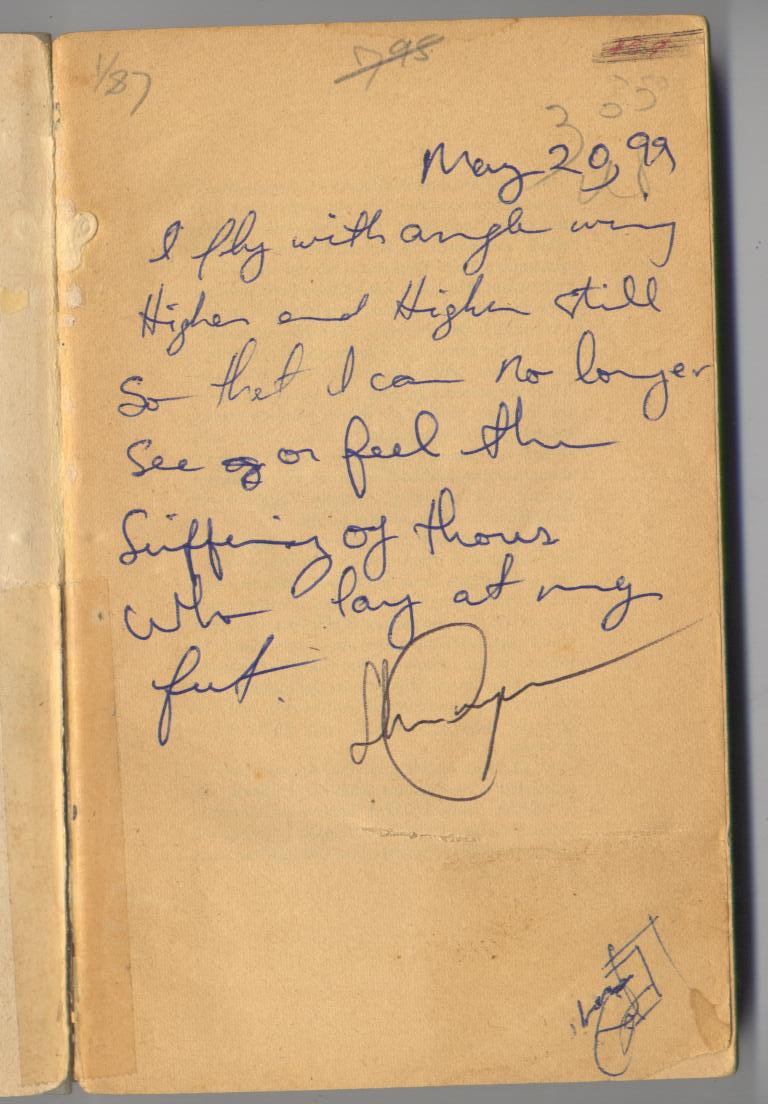 1/87
7 95
May 20, 99
I fly with angle wing
Higher and Higher still
So that I can no longer
See or feel the
Suffering of thous
Who lay at my
feet.